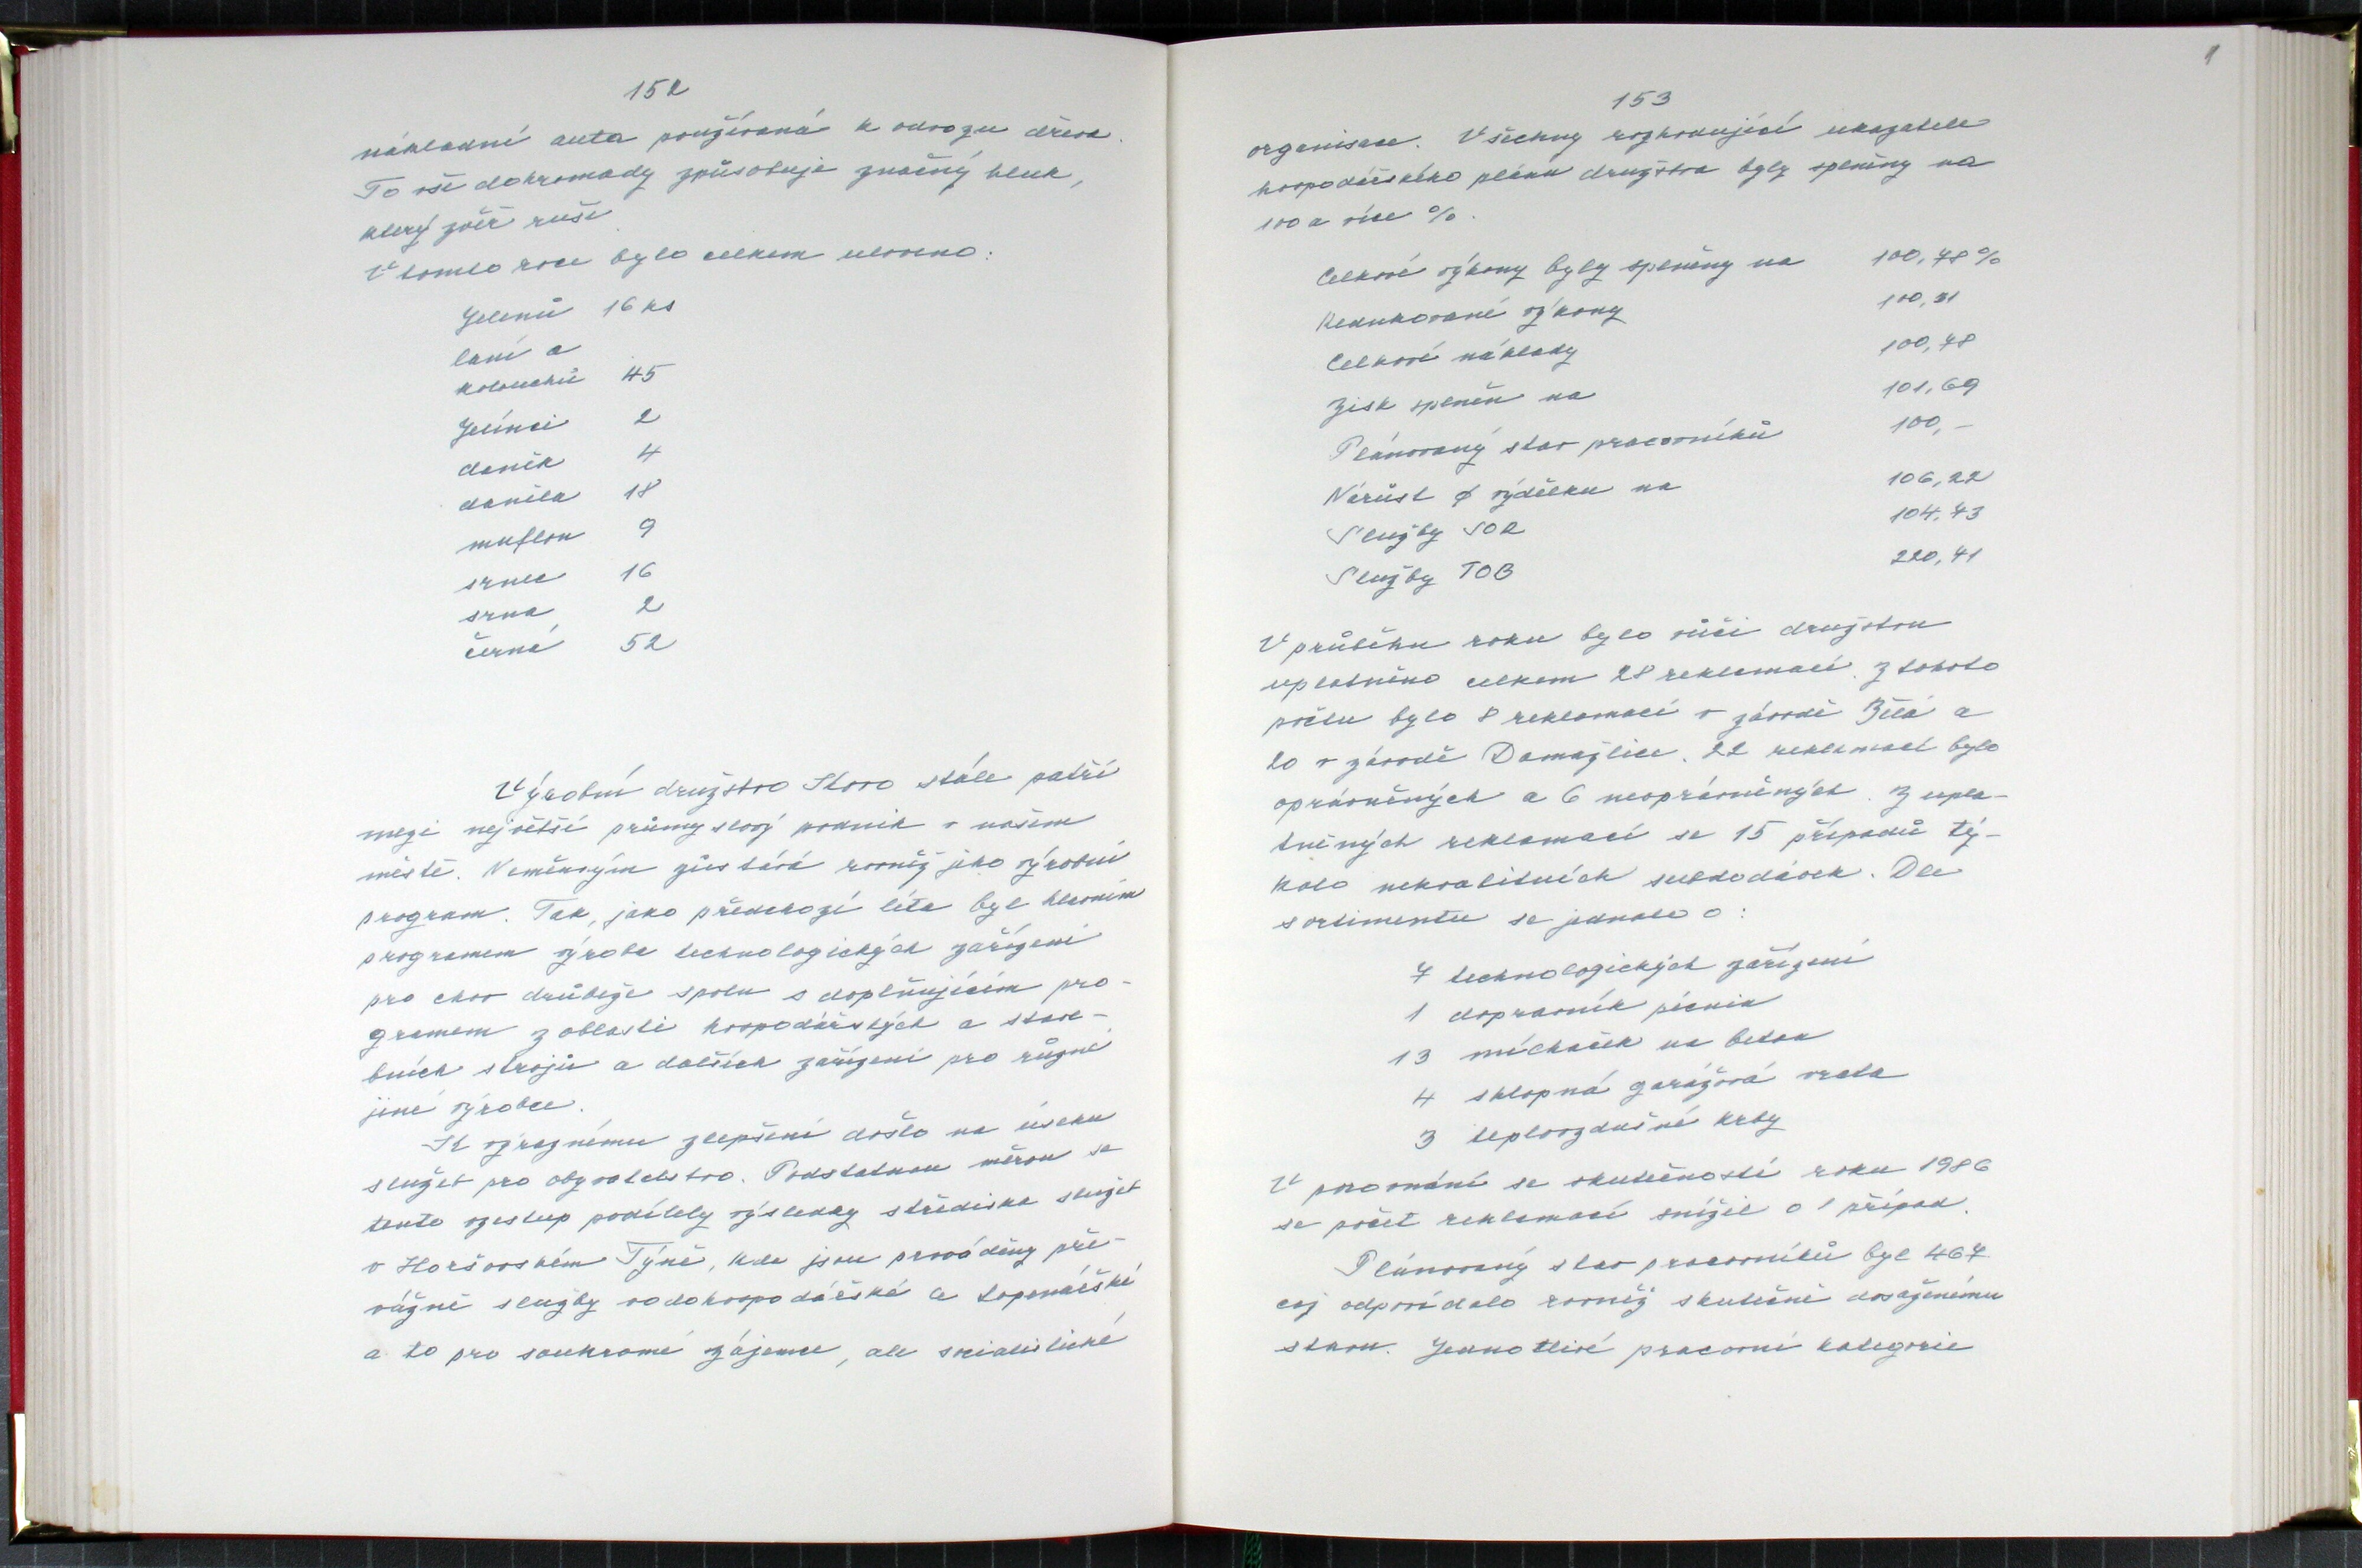 152
nákladní auta používaná k odvozu dřeva.
To vše dohromady způsobuje značný hluk,
který zvěř ruší.
V tomto roce bylo celkem uloveno:
Jelenů 16 ks
laní a
kolouchů 45
Jelínci 2
daněk 4
daněla 18
muflon 9
srnec 16
srna 2
černá 52
Výrobní družstvo Kovo stále patří
mezi největší průmyslový podnik v našem
městě. Neměnným zůstává rovněž jeho výrobní
program. Tak, jako předchozí léta byl hlavním
programem výroba technologických zařízení
pro chov drůbeže spolu s doplňujícím pro-
gramem z oblasti hospodářských a stave-
bních strojů a dalších zařízení pro různé
jiné výrobce.
K výraznému zlepšení došlo na úseku
služeb pro obyvatelstvo. Podstatnou měrou se
tento vzestup podílely výsledky střediska služeb
v Horšovském Týně, kde jsou prováděny pře-
vážně služby vodohospodářské a topenářské
a to pro soukromé zájemce, ale socialistické
153
organisace. Všechny rozhodující ukazatele
hospodářského plánu družstva byly splněny na
100 a více %.
Celkové výkony byly splněny na 100,78 %
Redukované výkony 100,31
Celkové náklady 100,78
Zisk splněn na 101,69
Plánovaný stav pracovníků 100,-
Nárůst ø výdělku na 106,22
Služby SOR 104,73
Služby TOB 220,41
V průběhu roku bylo vůči družstvu
uplatněno celkem 28 reklamací. Z tohoto
počtu bylo 8 reklamací v závodě Bělá a
20 v závodě Domažlice. 22 reklamací bylo
oprávněných a 6 neoprávněných. Z upla-
tněných reklamací se 15 případů tý-
kalo nekvalitních subdodávek. Dle
sortimentu se jednalo o:
7 technologických zařízení
1 dopravník pícnin
13 míchaček na beton
4 sklopná garážová vrata
3 teplovzdušné krby
V porovnání se skutečností roku 1986
se počet reklamací snížil o 1 případ.
Plánovaný stav pracovníků byl 467
což odpovídalo rovněž skutečně dosaženému
stavu. Jednotlivé pracovní kategorie